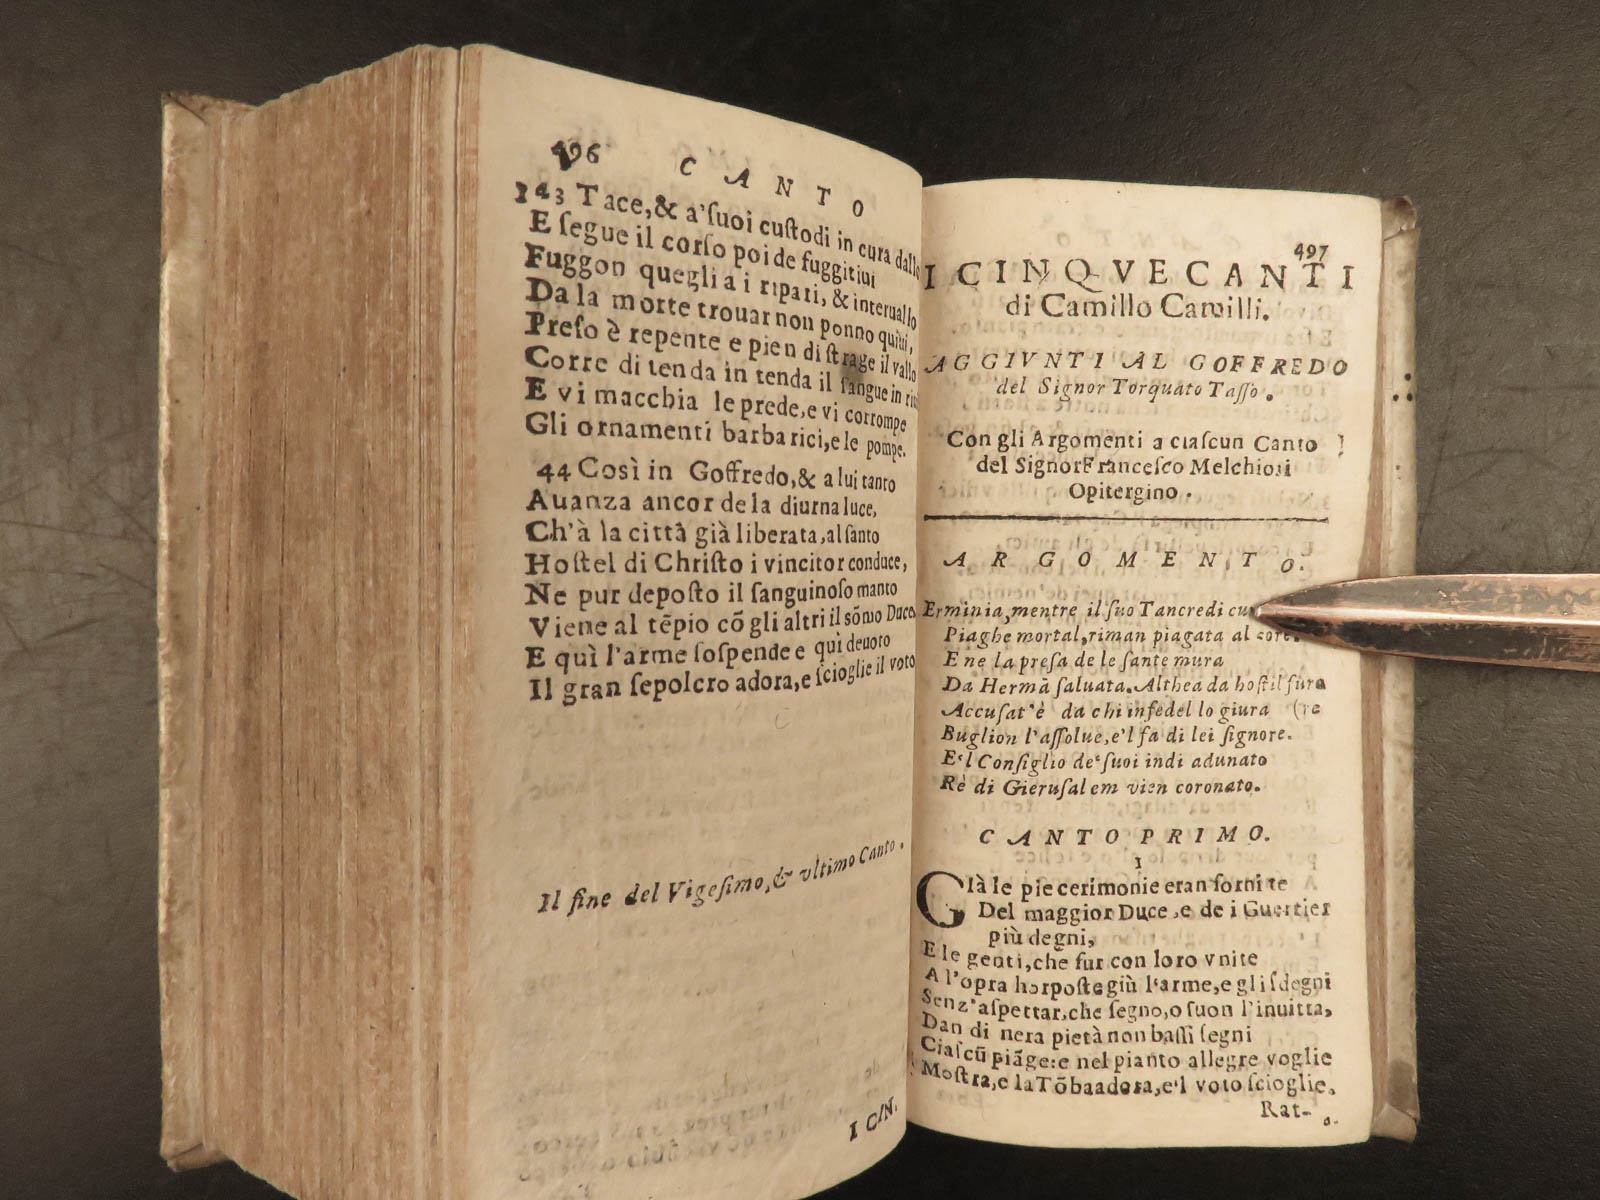 496 CANTO
143 Tace, & a' ſuoi cuſtodi in cura dallo
E ſegue il corſo poi de fuggitiui
Fuggon quegli a i ripari, & interuallo
Da la morte trouar non ponno quiui,
Preſo è repente e pien di ſtrage il vallo
Corre di tenda in tenda il ſangue in
E vi macchia le prede, e vi corrompe
Gli ornamenti barbarici, e le pompe.
44 Così in Goffredo, & a lui tanto
Auanza ancor de la diurna luce,
Ch'à la città già liberata, al ſanto
Hoſtel di Chriſto i vincitor conduce,
Ne pur depoſto il ſanguinoſo manto
Viene al tẽpio cõ gli altri il sõmo Duce,
E quì l'arme ſoſpende e quì deuoto
Il gran ſepolcro adora, e ſcioglie il voto
Il fine del Vigeſimo, & vltimo Canto.
I CIN.
497
I CINQVE CANTI
di Camillo Camilli.
AGGIVNTI AL GOFFREDO
del Signor Torquato Taſſo.
Con gli Argomenti a ciaſcun Canto
del Signor Franceſco Melchiori
Opitergino.
ARGOMENTO.
Erminia, mentre il ſuo Tancredi
Piaghe mortal, riman piagata al core.
E ne la preſa de le ſante mura
Da Hermā ſaluata. Althea da hoſtil fura
Accuſat'è da chi infedel lo giura (re
Buglion l'aſſolue, e'l fa di lei ſignore.
E'l Conſiglio de' ſuoi indi adunato
Rè di Gieruſalem vien coronato.
CANTO PRIMO.
1
GIà le pie cerimonie eran fornite
Del maggior Duce, e de i Guerrier
più degni,
E le genti, che fur con loro vnite
A l'opra hor poſte giù l'arme, e gli ſdegni
Senz'aſpettar, che ſegno, o ſuon l'inuita,
Dan di nera pietà non baſſi ſegni
Ciaſcũ piāge: e nel pianto allegre voglie
Moſtra, e la Tõba adora, e'l voto ſcioglie.
Rat-